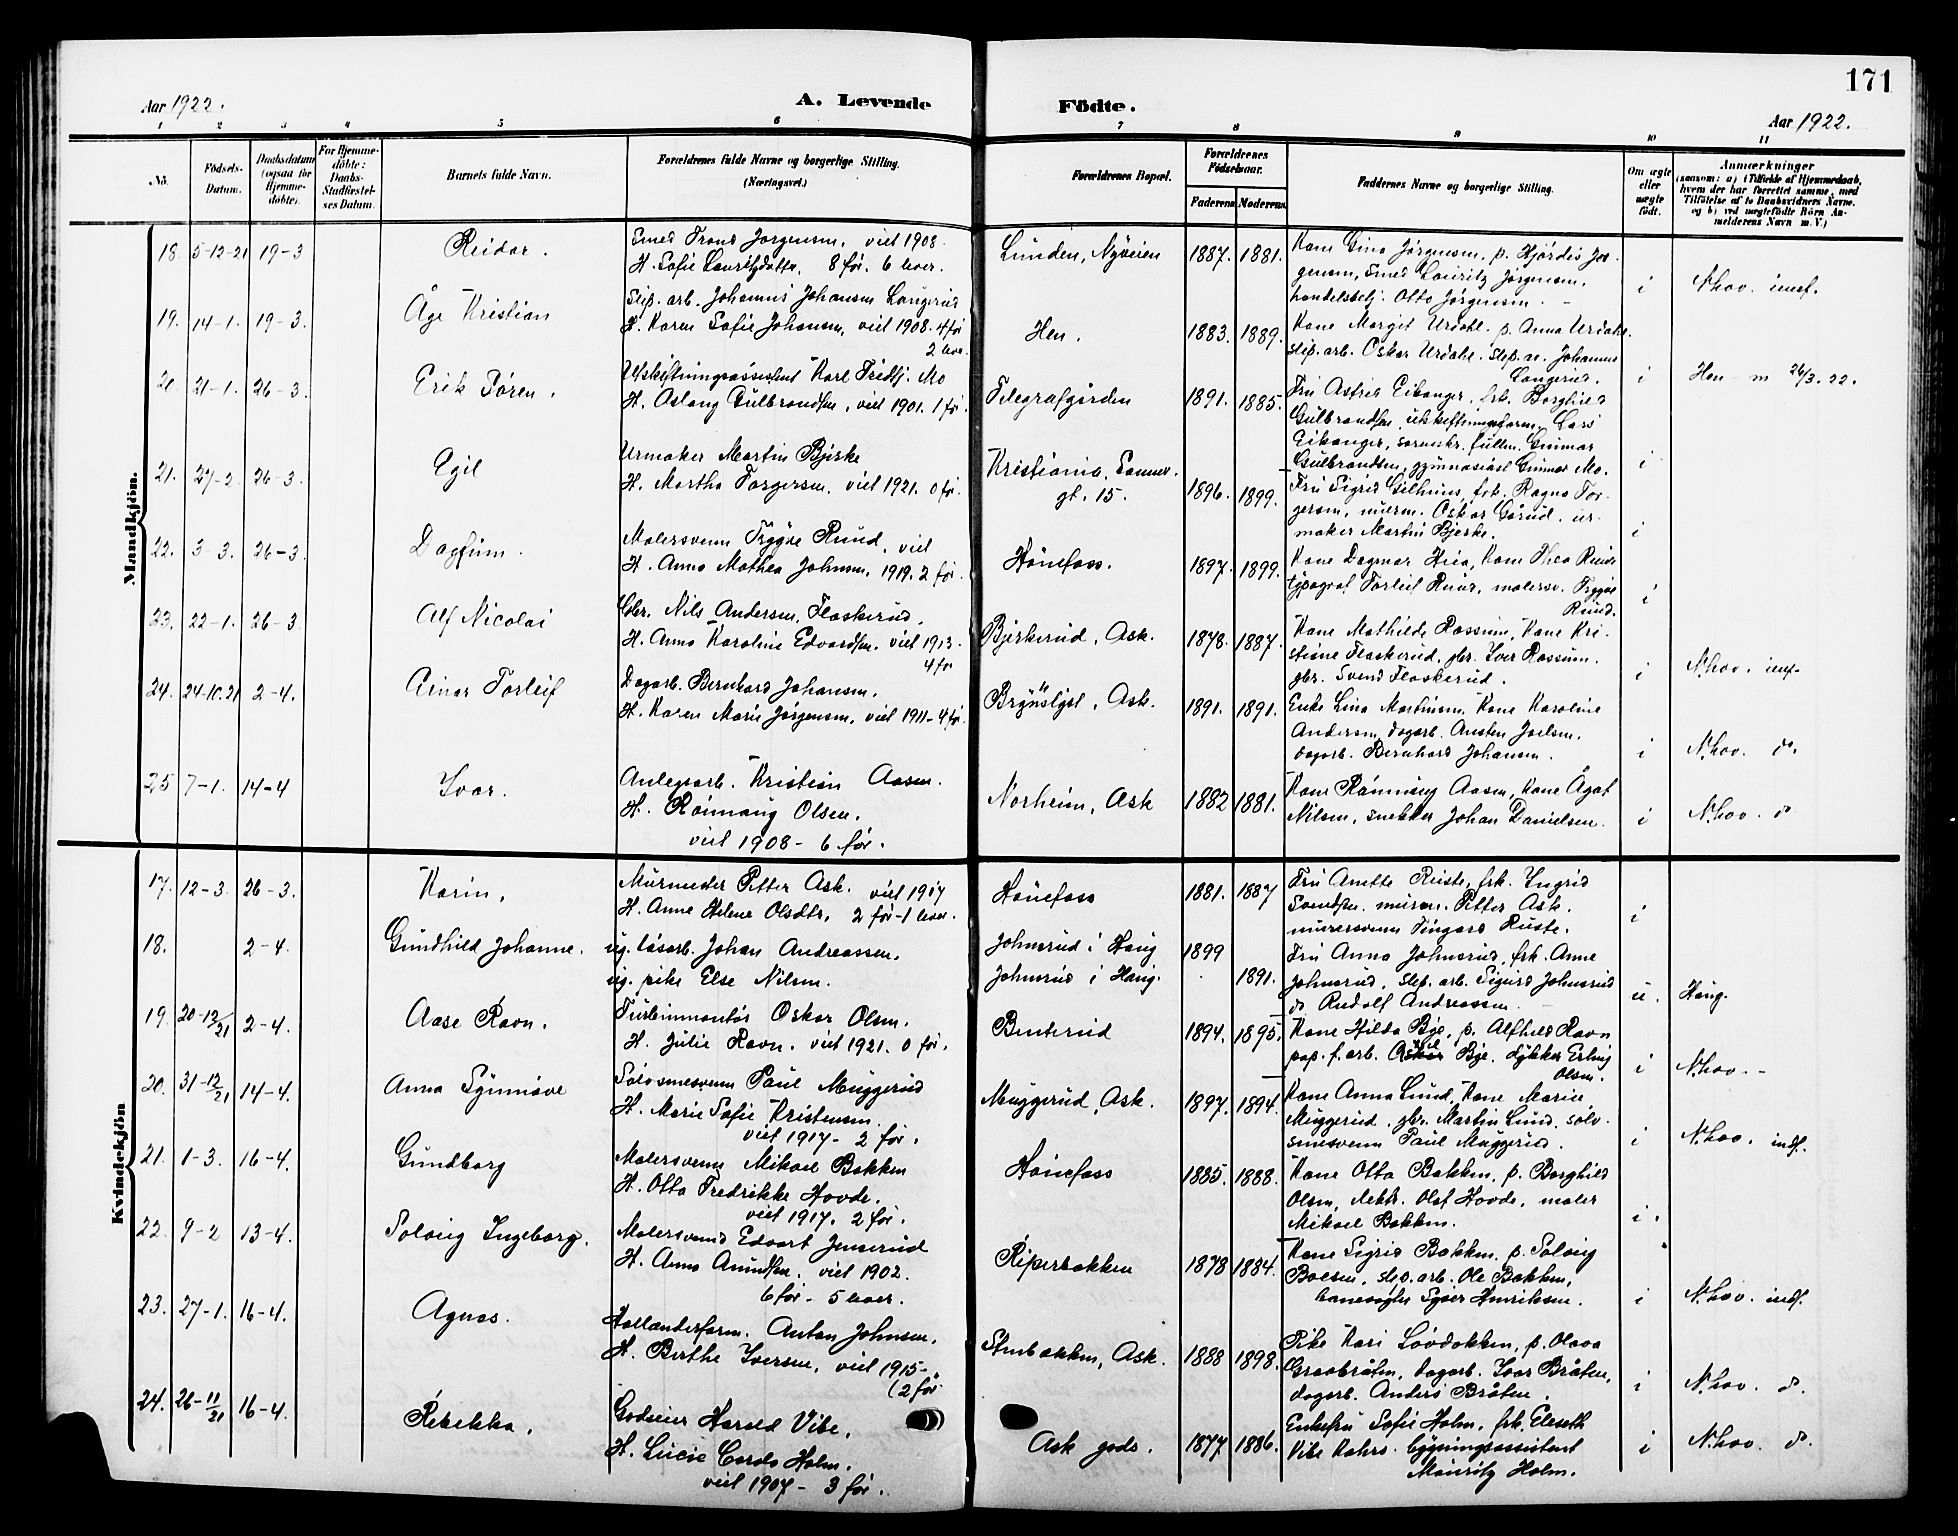 171
Aar 1922.
A. Levende Födte.
Aar 1922.
1 2 3 4 5 6 7 8 9 10 11
No.
Födsels-Datum.
Daabsdatum (ogsaa for Hjemmedöbte).
For Hjemmedöbte: Daabs-Stadfæstelses Datum.
Barnets fulde Navn.
Forældrenes fulde Navne og borgerlige Stilling. (Næringsvei.)
Forældrenes Bopæl.
Forældrenes Födselsaar.
Faderens Moderens
Faddernes Navne og borgerlige Stilling.
Om ægte eller uægte födt.
Anmærkninger
(saasom: a) i Tilfælde af Hjemmedaab, hvem der har forrettet samme, med Tilföielse af to Daabsvidners Navne, og b) ved uægtefödte Börn Anmelderens Navn m. V.)
Mandkjön.
18. 5-12-21 19-3 Reidar.
Smed Trond Jørgensen, viet 1908.
H. Sofie Lauritzdatter, 8 før. 6 lever.
Lunden, Nyveien 1887. 1881.
Kone Gina Jørgensen, p. Hjørdis Jør-
gensen, smed Lauritz Jørgensen,
handelsbetj. Otto Jørgensen. -
i N.hov. indf.
19. 14-1. 19-3. Åge Kristian
Slip. arb. Johannes Johansen Langerud
H. Karen Sofie Johansen, viet 1908. 4 før
2 lever.
Hen. 1883. 1889.
Kone Margit Urdahl. p. Anna Urdahl.
slip. arb. Oskar Urdahl. slip. ar. Johannes
Langerud.
i Hen - m 26/3. 22.
20. 21-1. 26-3. Erik Søren.
Utskiftningsassistent Karl Fridtj. Mo
H. Aslaug Gulbrandsen, viet 1901. 1 før.
Telegrafgården 1891. 1885.
Fru Astrid Eikanger, frk. Borghild
Gulbrandsen, utskiftningsform. Lars
Eikanger, sorenskr. fullm. Gunnar
Gulbrandsen, gymnasiast Gunnar Mo.
i
21. 27-2 26-3. Egil
Urmaker Martin Bjerke
H. Martha Torgersen, viet 1921. 0 før.
Kristiania, Sannerr.
gt. 15. 1896. 1899.
Fru Sigrid Gilhuus, frk. Ragna Tor-
gersen, murm. Oskar Gårud. ur-
maker Martin Bjerke.
i
22. 3-3. 26-3. Dagfinn.
Malersvenn Trygve Ruud, viet
H. Anna Mathea Johnsen, 1919. 2 før.
Hønefoss. 1897. 1899.
Kone Dagmar Hiea, Kone Thea Ruud
typograf Torleif Ruud, malersv. Trygve
Ruud.
i
23. 22-1. 26-3 Alf Nicolai
Gbr. Nils Andersen Flaskerud.
H. Anna Karoline Edvardsen, viet 1913.
4 før
Bjerkerud, Ask. 1878. 1887.
Kone Mathilde Rossum, Kone Kri-
stiane Flaskerud, gbr. Iver Rossum.
gbr. Svend Flaskerud.
i N.hov. indf.
24. 24-10.21 2-4. Einar Torleif
Dagarb. Bernhard Johansen.
H. Karen Marie Jørgensen, viet 1911-4 før.
Brynsløst, Ask. 1891. 1891.
Enke Lina Martinsen, Kone Karoline
Andersen, dagarb. Austen Joelsen.
dagarb. Bernhard Johansen.
i N.hov. do.
25 7-1. 14-4 Ivar.
Anlegsarb. Kristian Aasen.
H. Rønnaug Olsen.
viet 1908 - 6 før.
Norheim, Ask 1882 1881.
Kone Rønnaug Aasen, Kone Ågat
Nilsen, snekker Johan Danielsen.
i N.hov. do
Kvindekjön
17. 12-3. 26-3. Karin.
Murmester Petter Ask. viet 1917
H. Anne Helene Olsdtr. 2 før-1 lever.
Hønefoss 1881. 1887
Fru Anette Ruste, frk. Ingrid
Svendsen. murm. Petter Ask.
murersvenn Fingard Ruste.
i
18. 2-4. Gundhild Johanne.
ug. løsarb. Johan Andreassen.
ug. pike Else Nilsen.
Johnsrud i Haug 1899
Johnsrud i Haug. 1891.
Fru Anna Johnsrud, frk. Anne
Johnsrud, slip. arb. Sigurd Johnsrud
do Rudolf Andreassen.
u. Haug.
19. 20-12/21 2-4. Aase Ravn.
Turbinmontør Oskar Olsen.
H. Julie Ravn. viet 1921. 0 før.
Benterud 1894. 1895.
Kone Hilda Bye, p. Alfhild Ravn
pap. f. arb. Bye. dykker Erling
Olsen.
i N.hov. -
20. 31-12/21 14-4. Anna Synnøve
Sølvsmesvenn Paul Muggerud
H. Marie Sofie Kristensen.
viet 1917 - 2 før.
Muggerud, Ask. 1897. 1894.
Kone Anna Lund, Kone Marie
Muggerud, gbr. Martin Lund, sølv-
smesvenn Paul Muggerud.
i N.hov. indf.
21. 1-3. 16-4. Gundborg
Malersvenn Mikael Bakken
H. Otta Fredrikke Hovde.
viet 1917. 2 før.
Hønefoss 1885. 1888.
Kone Otta Bakken, p. Borghild
Olsen, Olaf Hovde, maler
Mikael Bakken.
i.
22. 9-2 13-4. Solveig Ingeborg.
Malersvend Edvart Jenserud
H. Anna Amundsen. viet 1902.
6 før - 5 lever.
Ripersbakken 1878 1884.
Kone Sigrid Bakken, p. Solveig
Boesen, slip. arb. Ole Bakken,
banevogter Syver Henriksen.
i N.hov. indf.
23. 27-1. 16-4. Agnes.
Hollenderform. Anton Johnsen.
H. Berthe Iversen, viet 1915-
(2 før
Stenbakken, Ask. 1888 1898.
Pike Kari Løvdokken, p. Olava
Graabråten, dagarb. Ivar Bråten,
dagarb. Anders Bråten.
i N.hov. do.
24. 26-11/21 16-4. Rebekka.
Godseier Harald Vibe.
H. Lucie Cords Holm.
viet 1907 - 3 før.
Ask gods. 1877 1886.
Enkefru Sofie Holm, frk. Eleseth
Vibe Kahrs. bygningsassistent
Mauritz Holm.
i N.hov. do.